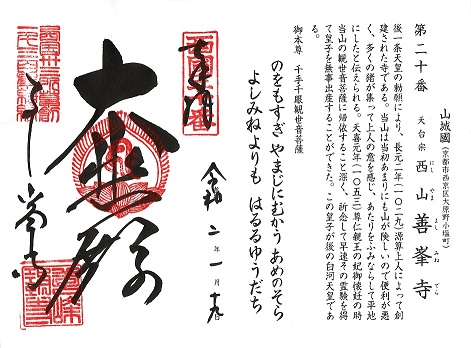 第二十番
山城國(京都市西京区大原野小塩町)
天台宗 西山 善峯寺
にし やま よし みね でら
後一条天皇の勅願により、長元二年(一〇二九)源算上人によって創
建された寺である。当山は当初あまりにも山が険しいので便利が悪
く、多くの猪が集って上人の意を感じ、あたりをふみならして平地
にしたと伝えられる。天喜元年(一〇五三)尊仁親王の妃御懐妊の時
当山の観世音菩薩に帰依すること深く、祈念して早速その霊験を得
て皇子を無事出産することができた。この皇子が後の白河天皇であ
る。
御本尊 千手千眼観世音菩薩
のをもすぎ やまじにむかう あめのそら
よしみねよりも はるるゆうだち
令和 二年 一月 十九日
奉拝
大悲殿